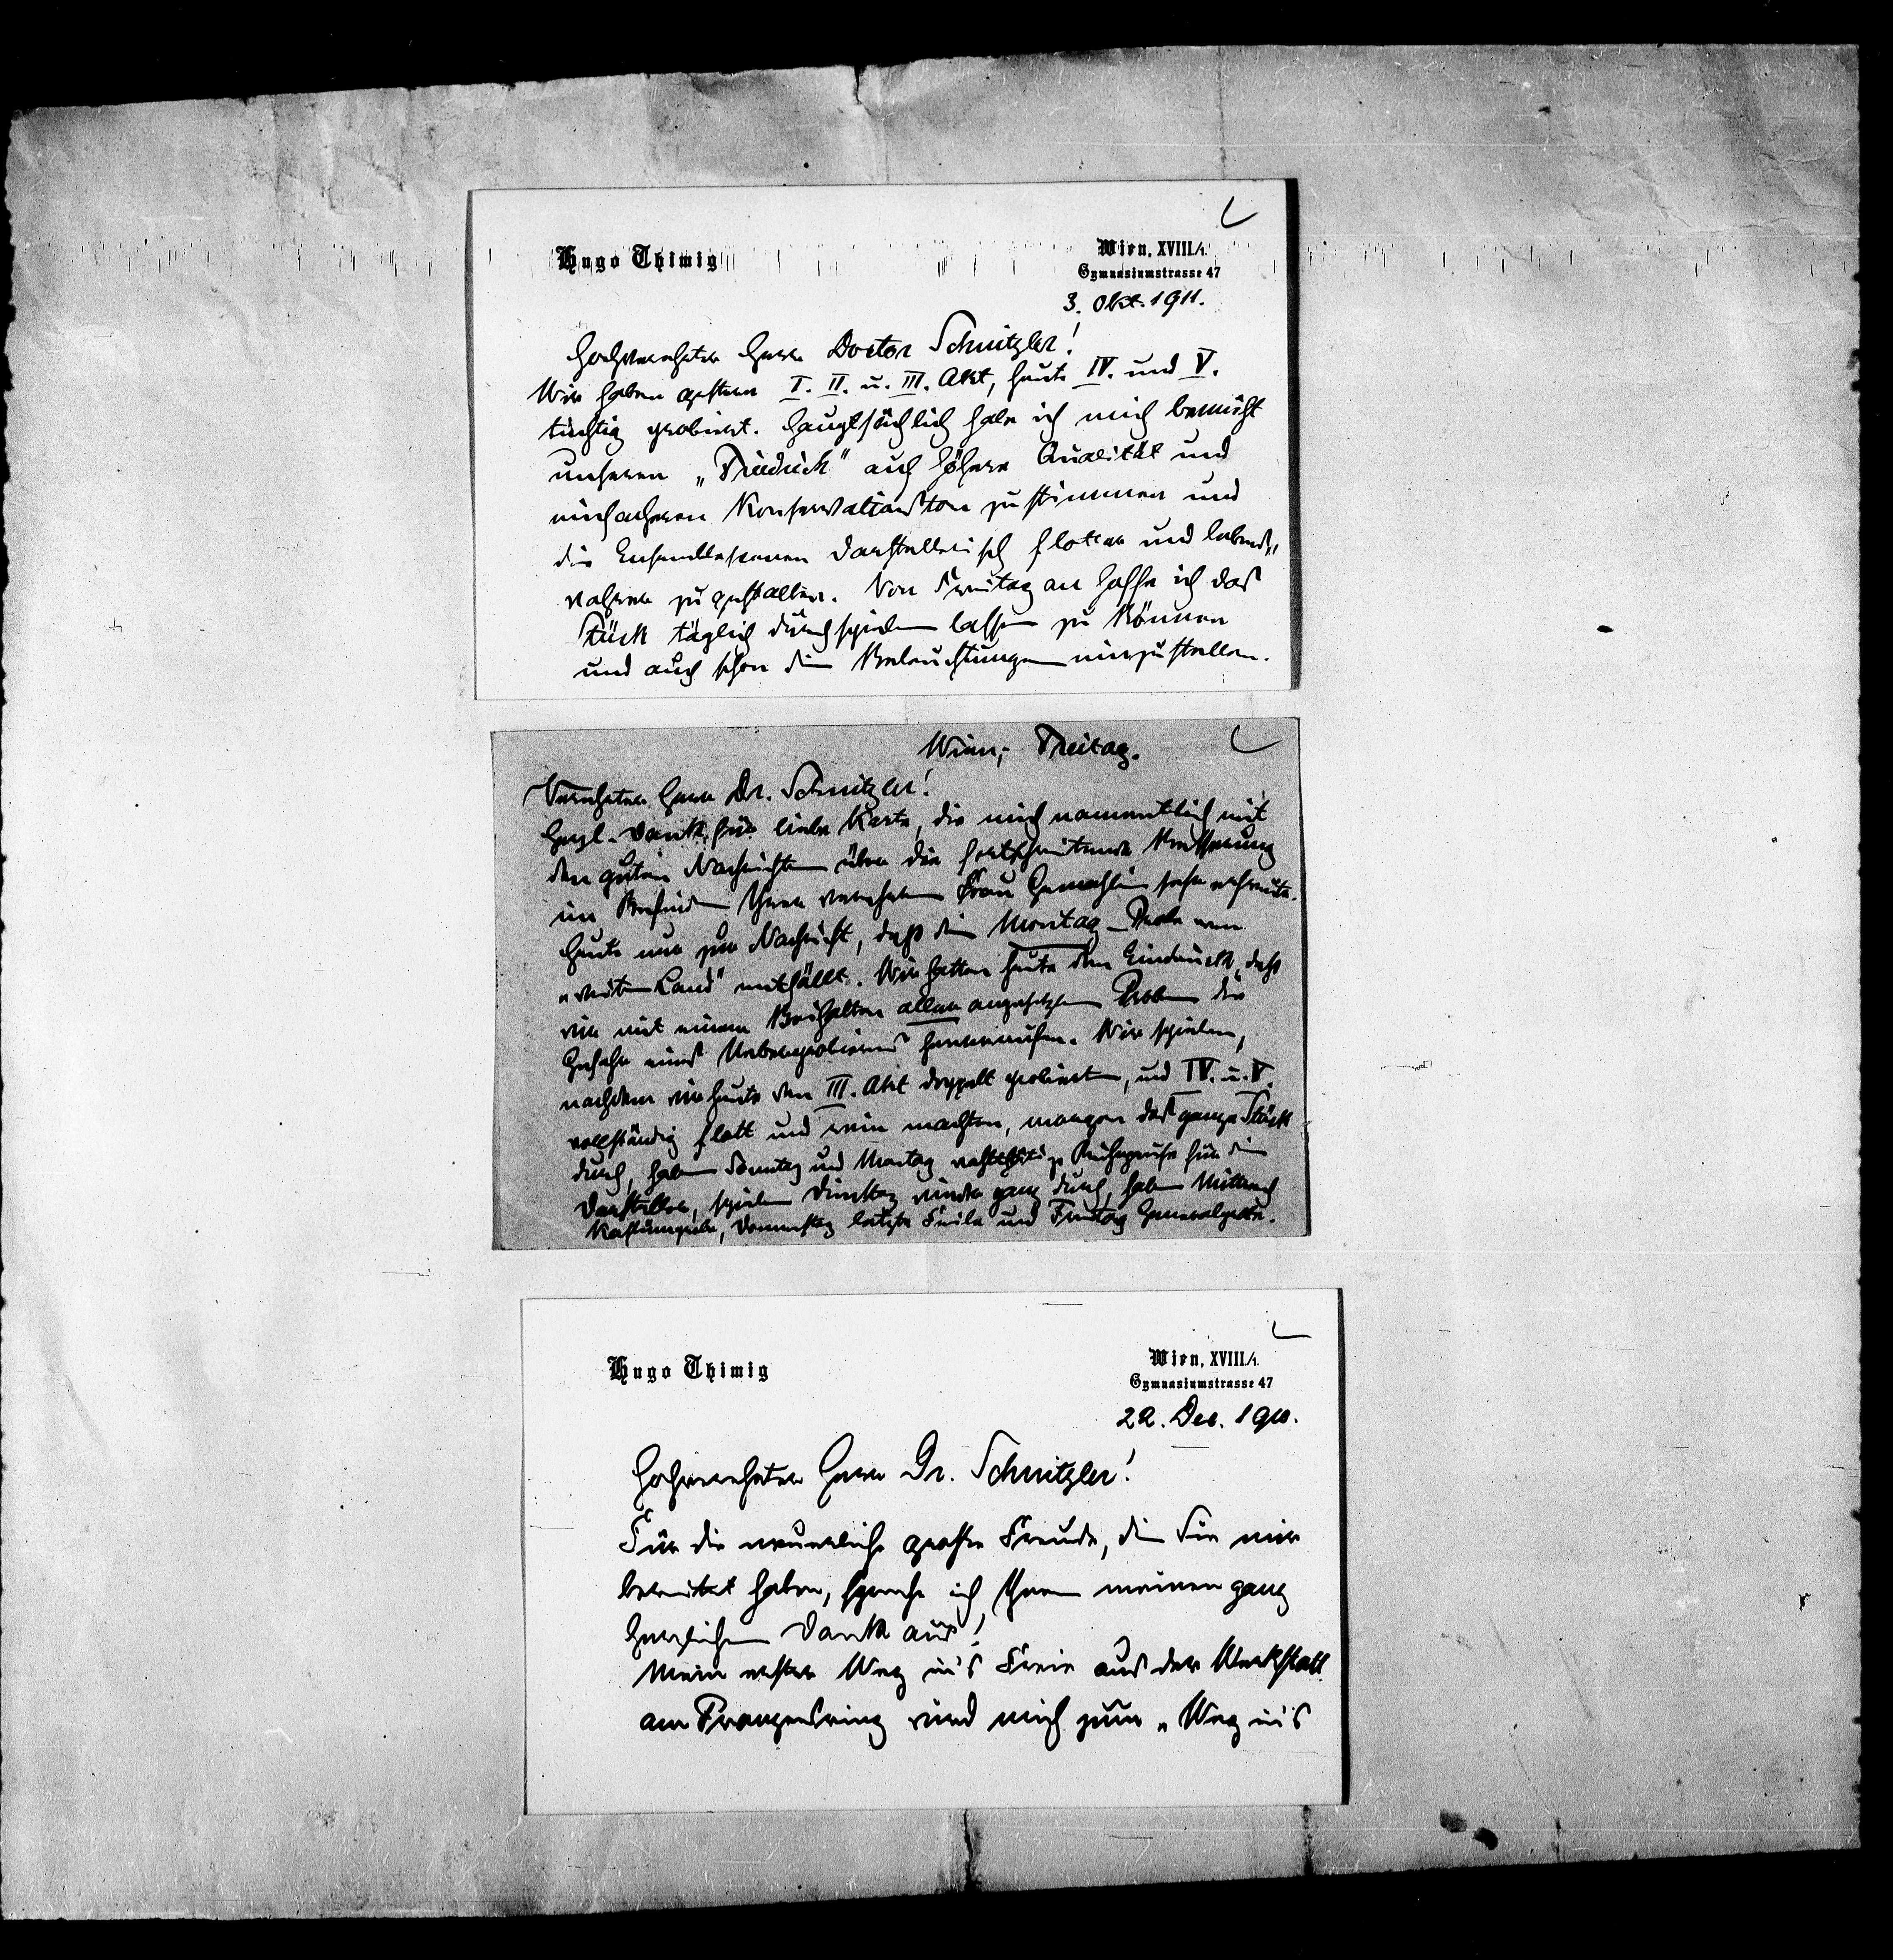 Hugo Thimig
Wien, XVIII/1.
Gymnasiumstrasse 47
3. Okt. 1911.
Hochverehrter Herr Doctor Schnitzler!
Wir haben gestern I. II. u. III. Akt, heute IV. und V.
tüchtig probiert. Hauptsächlich habe ich mich bemüht
unseren „Friedrich" auf höhere Qualität und
einfacheren Konversationston zu stimmen und
die Ensemblescenen darstellerisch flotter und lebens-
wahrer zu gestalten. Von Freitag an hoffe ich das
Stück täglich durchspielen lassen zu können
und auch schon die Beleuchtungen einzustellen.
Wien, Freitag.
Verehrter Herr Dr. Schnitzler!
Herzl. Dank für liebe Karte, die mich namentlich mit
den guten Nachrichten über die fortschreitende Besserung
im Befinden Ihrer verehrten Frau Gemahlin sehr erfreute.
Heute nur zur Nachricht, daß die Montag-Probe von
„weiten Land" entfällt. Wir hatten heute den Eindruck, daß
wir mit einem Beibehalten aller angesetzten Proben die
Gefahr eines Ueberprobierens heraufrufen. Wir spielen,
nachdem wir heute den III. Akt doppelt probierten, und IV. u. V.
vollständig glatt und rein machten, morgen das ganze Stück
durch, haben Sonntag und Montag Ruhepause für die
Darsteller, spielen Dienstag wieder ganz durch, haben Mittwoch
Kostümprobe, Donnerstag letzte Feile und Freitag Generalprobe.
Hugo Thimig
Wien, XVIII/1.
Gymnasiumstrasse 47
22. Dec. 1910.
Hochverehrter Herr Dr. Schnitzler!
Für die neuerliche große Freude, die Sie mir
bereitet haben, spreche ich Ihnen meinen ganz
herzlichen Dank aus!
Mein erster Weg in's Freie aus der Werkstatt
am Franzensring wird mich zum „Weg in's